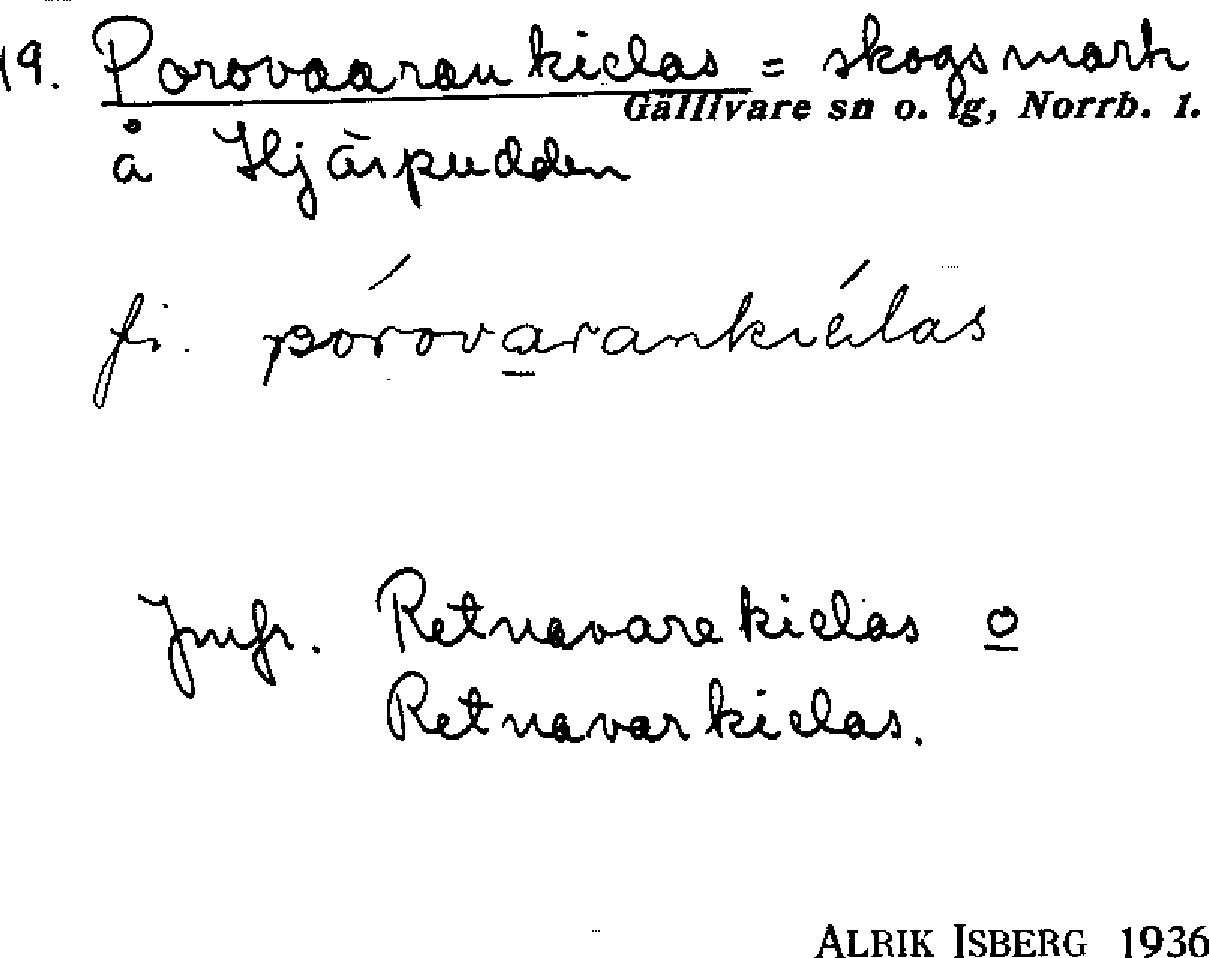 19. Porovaarankielas = skogsmark
Gällivare sn o. lg, Norrb. l.
å Hjärpudden
fi. pórovarankiélas
Jmfr. Retnavarekielas o
Retnavarkielas.
ALRIK ISBERG 1936